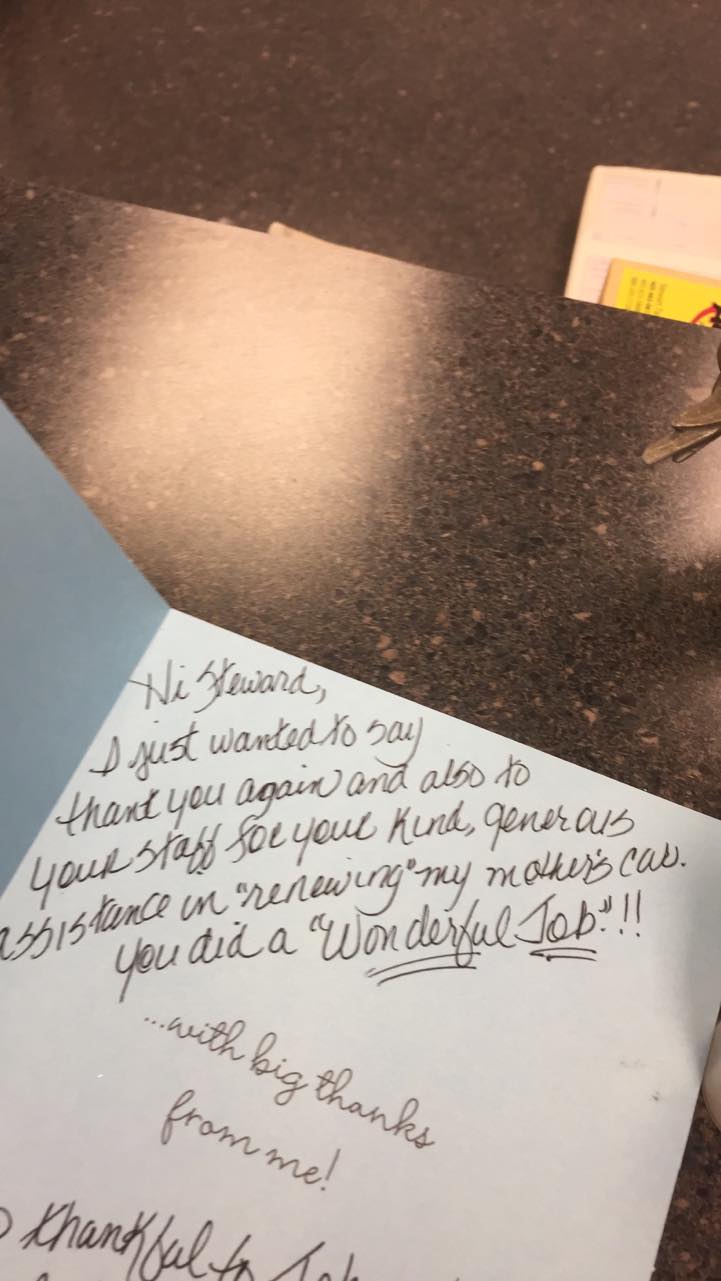 Hi Steward,
I just wanted to say
thank you again and also to
your staff for your kind, generous
assistance in "renewing" my mother's car.
You did a "Wonderful Job"!!!
...with big thanks
from me!
thankful to